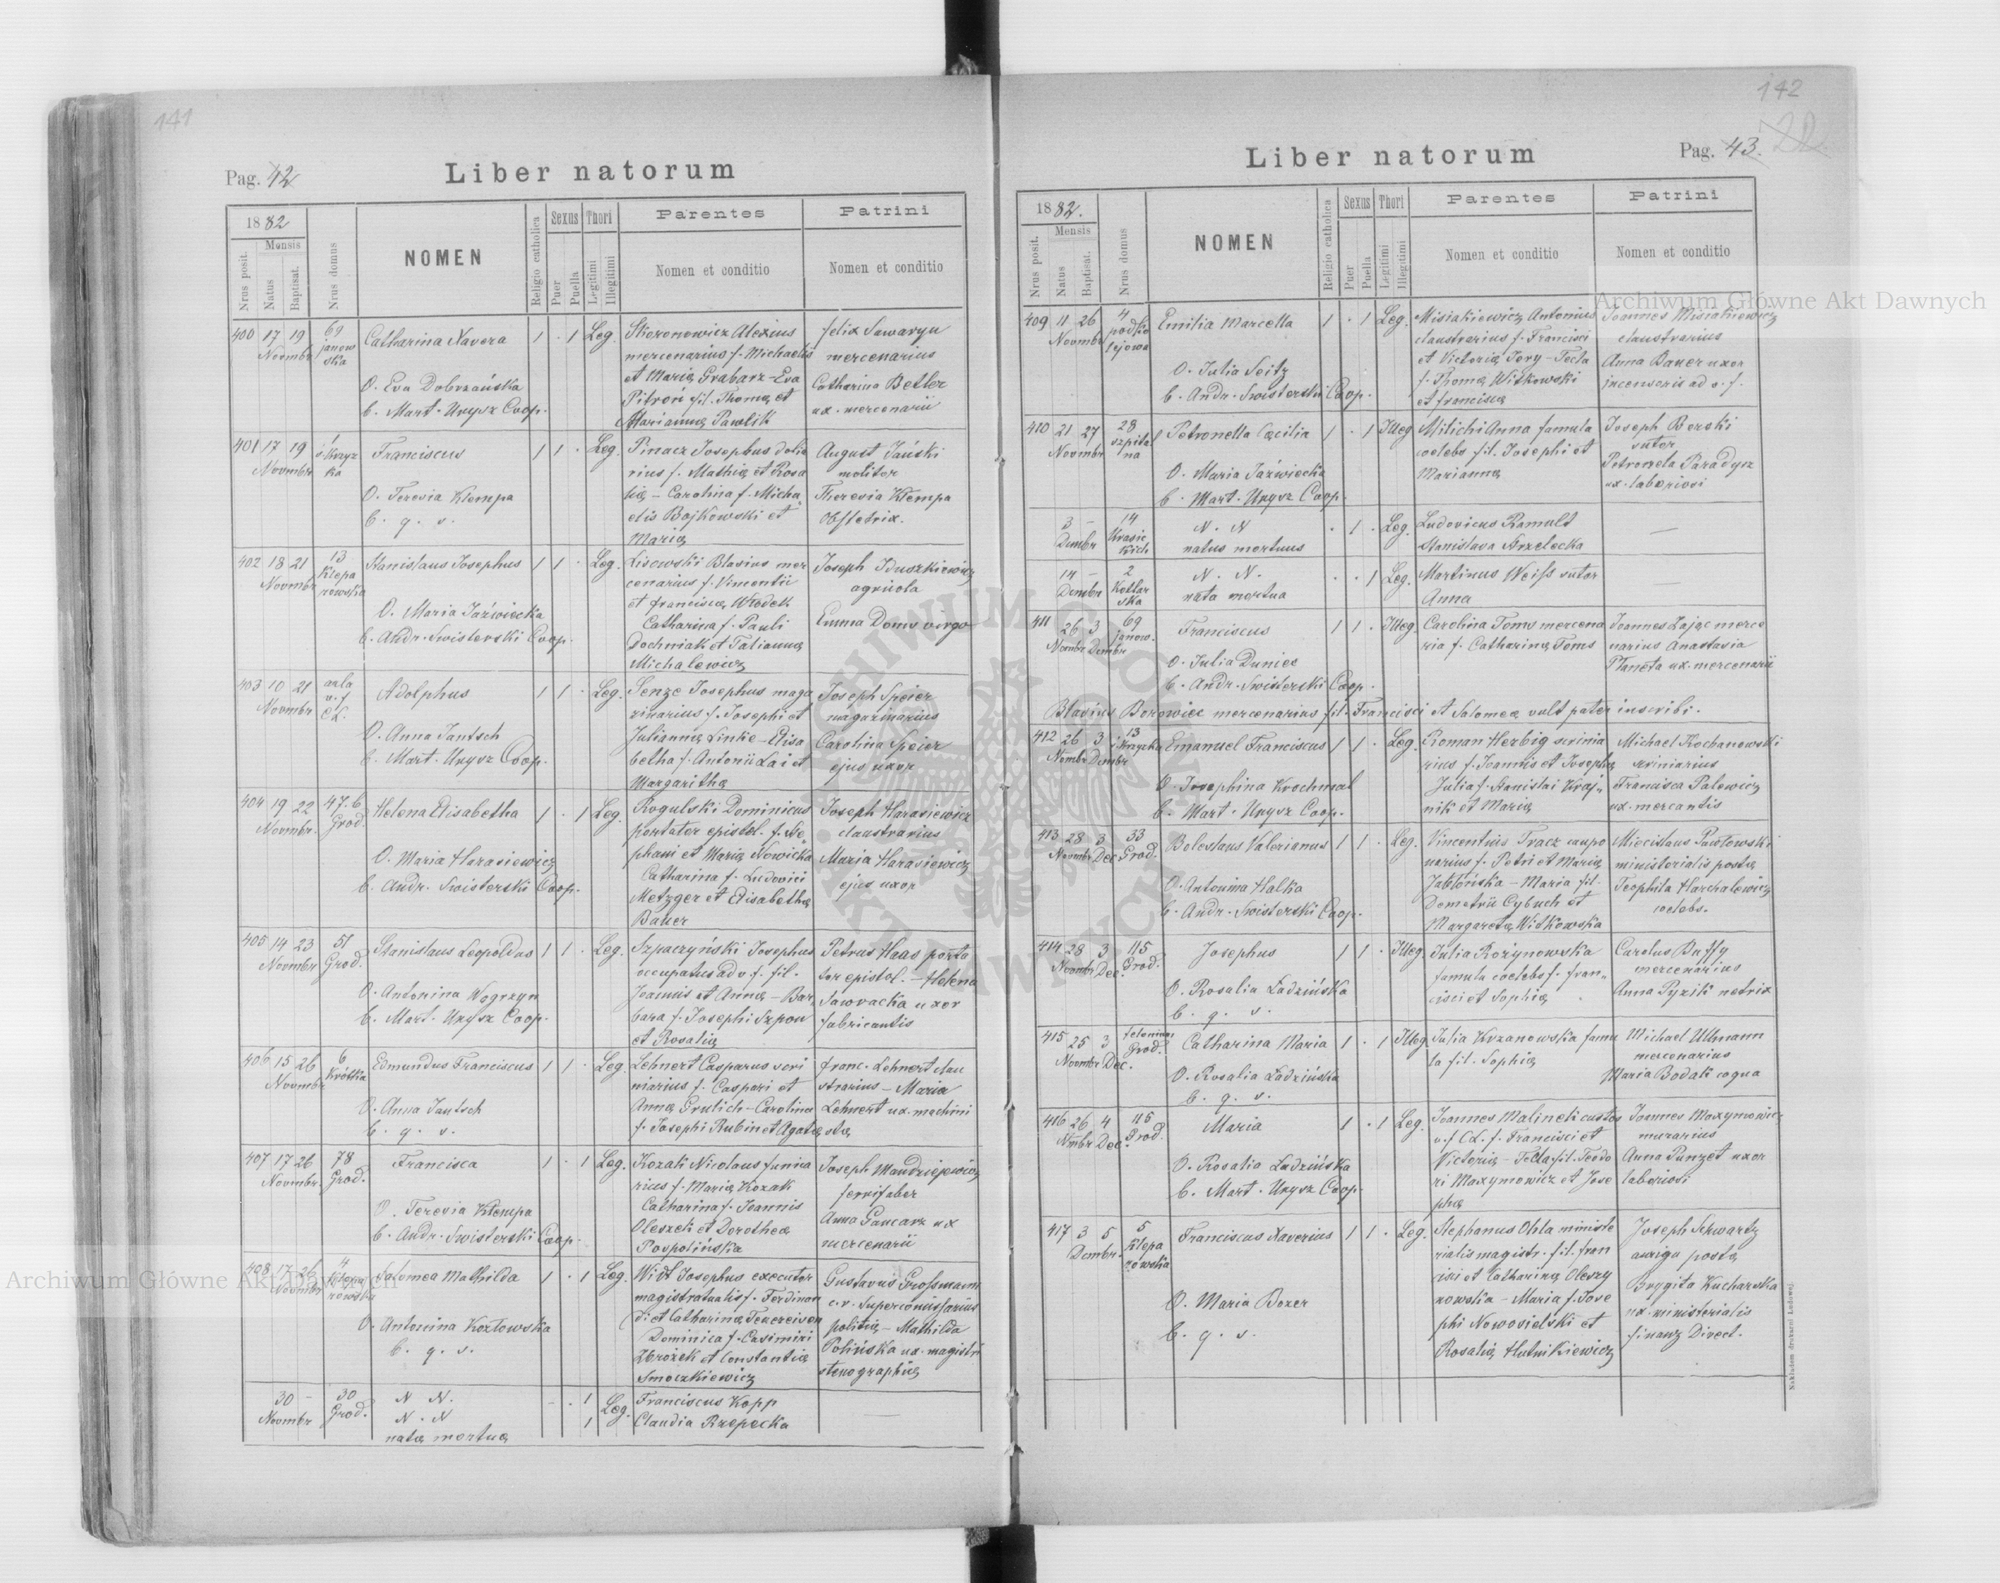 141
Pag. 42
Liber natorum
1882
Mensis
Nrus posit.
Natus
Baptisat.
Nrus domus
NOMEN
Religio catholica
Sexus
Puer
Puella
Thori
Legitimi
Illegitimi
Parentes
Nomen et conditio
Patrini
Nomen et conditio
400 17 19 Novmbr
69 janowska
Catharina Xavera
O. Eva Dobrzańska
b. Mart. Unysz Coop.
1 . 1 Leg.
Skeronowicz Alexius
mercenarius f. Michaelis
et Maria Grabarz - Eva
Pitroń fil. Thomæ et
Marianna Pawlik
Felix Sawaryn
mercenarius
Catharina Betler
ux. mercenarii
401 17 19 Novmbr
Franciscus
O. Teresia Klempa
b. q. s.
1 1 . Leg.
Pinacz Josephus dolia
rius f. Mathiæ et Rosa
lia - Carolina f. Micha
elis Bojkowski et
Maria
August Jański
molitor
Theresia Klempa
obstetrix.
402 18 21 Novmbr
13 Kleparowska
Stanislaus Josephus
O. Maria Jaźwiecka
b. Andr. Swisterski Coop.
1 1 . Leg.
Lisowski Blasius mer
cenarius f. Vincentii
et Francisca Wrodek
Catharina f. Pauli
Dochniak et Tatianna
Michalewicz
Joseph Iduszkiewicz
agricola
Emma Doms virgo
403 10 21 Novmbr
Adolphus
O. Anna Jantsch
b. Mart. Unysz Coop.
1 1 . Leg.
Senze Josephus maga
zinarius f. Josephi et
Julianna Linke - Elisa
betha f. Antonii Lai et
Margaritha
Joseph Speier
magazinarius
Carolina Speier
ejus uxor
404 19 22 Novmbr.
47.b Grod.
Helena Elisabetha
O. Maria Harasiewicz
b. Andr. Swisterski Coop.
1 . 1 Leg.
Rogulski Dominicus
portator epistol. f. Ste
phani et Maria Nowicka
Catharina f. Ludovici
Metzger et Elisabetha
Bauer
Joseph Harasiewicz
claustrarius
Maria Harasiewicz
ejus uxor
405 14 23 Novmbr
51 Grod.
Stanislaus Leopoldus
O. Antonina Wogrzyn
b. Mart. Unysz Coop.
1 1 . Leg.
Szpaczyński Josephus
occupatus ad v. f. fil.
Joannis et Anna - Bar
bara f. Josephi Szpon
et Rosalia
Petrus Haas porta
tor epistol. - Helena
Sawacka uxor
fabricantis
406 15 26 Novmbr
6 Krótka
Edmundus Franciscus
O. Anna Jantsch
b. q. s.
1 1 . Leg.
Lehnert Casparus scri
niarius f. Caspari et
Anna Grulich - Carolina
f. Josephi Rubin et Agatha
Franc. Lehnert clau
strarius - Maria
Lehnert ux. machini
sta
407 17 26 Novmbr.
78 Grod.
Francisca
O. Teresia Klempa
b. Andr. Swisterski Coop.
1 . 1 Leg.
Kozak Nicolaus funica
rius f. Maria Kozak
Catharina f. Joannis
Oleszek et Dorothea
Pospolińska
Joseph Mandziejewicz
ferrifaber
Anna Gancarz ux
mercenarii
408 17 26 Novmbr
Salomea Mathilda
O. Antonina Kozłowska
b. q. s.
1 . 1 Leg.
Widt Josephus executor
magistratualis f. Ferdinan
di et Catharina
Dominica f. Casimiri
Zbrożek et Constantia
Smoczkiewicz
Gustavus Grossmann
c.r. supercomissarius
politia - Mathilda
Polińska ux. magistri
stenographia
30 - Novmbr
30 Grod.
N. N.
N. N
nata mortua
. . 1 1 Leg.
Franciscus Kopp
Claudia Rzepecka
142
Liber natorum
Pag. 43.
1882.
Mensis
Nrus posit.
Natus
Baptisat.
Nrus domus
NOMEN
Religio catholica
Sexus
Puer
Puella
Thori
Legitimi
Illegitimi
Parentes
Nomen et conditio
Patrini
Nomen et conditio
409 11 26 Novmbr
Emilia Marcella
O. Julia Seitz
b. Andr. Swisterski Coop.
1 . 1 Leg.
Misiakiewicz Antonius
claustrarius f. Francisci
et Victoria Jory - Tecla
f. Thoma Witkowski
et Francisca
Joannes Misiakiewicz
claustrarius
Anna Bauer uxor
incensoris ad v. f.
410 21 27 Novmbr
28 szpitalna
Petronella Cæcilia
O. Maria Jaźwiecka
b. Mart. Unysz Coop.
1 . 1 Illeg
Milich Anna famula
coelebs fil. Josephi et
Marianna
Joseph Berski
sutor
Petronela Paradysz
ux. laboriosi
3 - Dcmbr
14 Krasickich
N. N
natus mortuus
. 1 . Leg.
Ludovicus Ramult
Stanislava Strzelecka
14 - Dcmbr
2 Kotlarska
N. N.
nata mortua
. . 1 Leg.
Martinus Weiss sutor
Anna
411 26 Novmbr 3 Dcmbr
69 janow.
Franciscus
O. Julia Duniec
b. Andr. Swisterski Coop.
1 1 . Illeg.
Carolina Toms mercena
ria f. Catharina Toms
Joannes Zając merce
narius Anastasia
Planeta ux. mercenarii
Blasius Borowiec mercenarius fil. Francisci et Salomea vult pater inscribi.
412 26 Novmbr 3 Dcmbr
13
Emanuel Franciscus
O. Josephina Krochmal
b. Mart. Unysz Coop.
1 1 . Leg.
Roman Herbig scrinia
rius f. Joannis et Josepha
Julia f. Stanislai Kraj
nik et Maria
Michael Kochanowski
scriniarius
Francisca Palewicz
ux. mercantis
413 28 Novmbr 3 Dec
33 Grod.
Boleslaus Valerianus
O. Antonina Halka
b. Andr. Swisterski Coop.
1 1 . Leg.
Vincentius Tracz caupo
narius f. Petri et Maria
Jabłońska - Maria fil.
Demetrii Cybuch et
Margareta Witkowska
Miecislaus Pawłowski
ministerialis posta
Teophila Harchalewicz
coelebs.
414 28 Novmbr 3 Dec.
115 Grod.
Josephus
O. Rosalia Ładzińska
b. q. s.
1 1 . Illeg
Julia Rożynowska
famula coelebs f. Fran
cisci et Sophia
Carolus Battfy
mercenarius
Anna Pyzik netrix
415 25 Novmbr 3 Dec.
Grod.
Catharina Maria
O. Rosalia Ładzińska
b. q. s.
1 . 1 Illeg
Julia Krzanowska famu
la fil. Sophia
Michael Ullmann
mercenarius
Maria Bodak coqua
416 26 Nmbr 4 Dec.
115 Grod.
Maria
O. Rosalia Ładzińska
b. Mart. Unysz Coop.
1 . 1 Leg.
Joannes Malinek custos
v. f. C.L. f. Francisci et
Victoria - Tecla fil. Teodo
ri Maxymowicz et Jose
pha
Joannes Maxymowicz
murarius
Anna Punzet uxor
laboriosi
417 3 5 Dcmbr.
5 Kleparowska
Franciscus Xaverius
O. Maria Boxer
b. q. s.
1 1 . Leg.
Stephanus Ohla ministe
rialis magistr. fil. Fran
cisci et Catharina Olexy
nowska - Maria f. Jose
phi Nowosielski et
Rosalia Hutnikiewicz
Joseph Schwartz
auriga posta
Brygita Kucharska
ux. ministerialis
finanz Direct.
Nakładem drukarni Ludowej.
Archiwum Główne Akt Dawnych
Archiwum Główne Akt Dawnych
ARCHIWUM GŁÓWNE AKT DAWNYCH